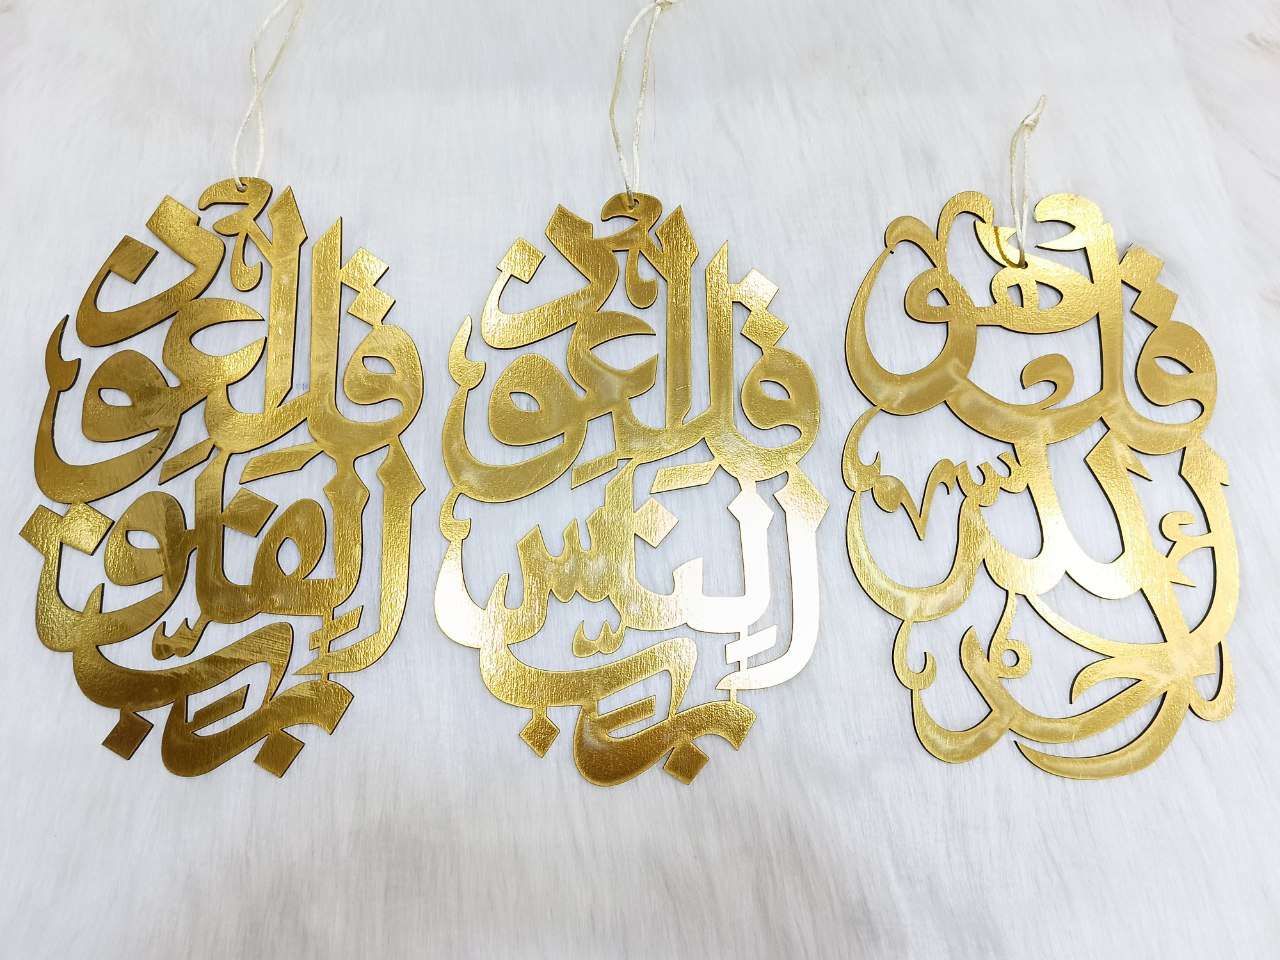 قل هو
الله
أحد
قل أعوذ
برب
الناس
قل أعوذ
برب
الفلق